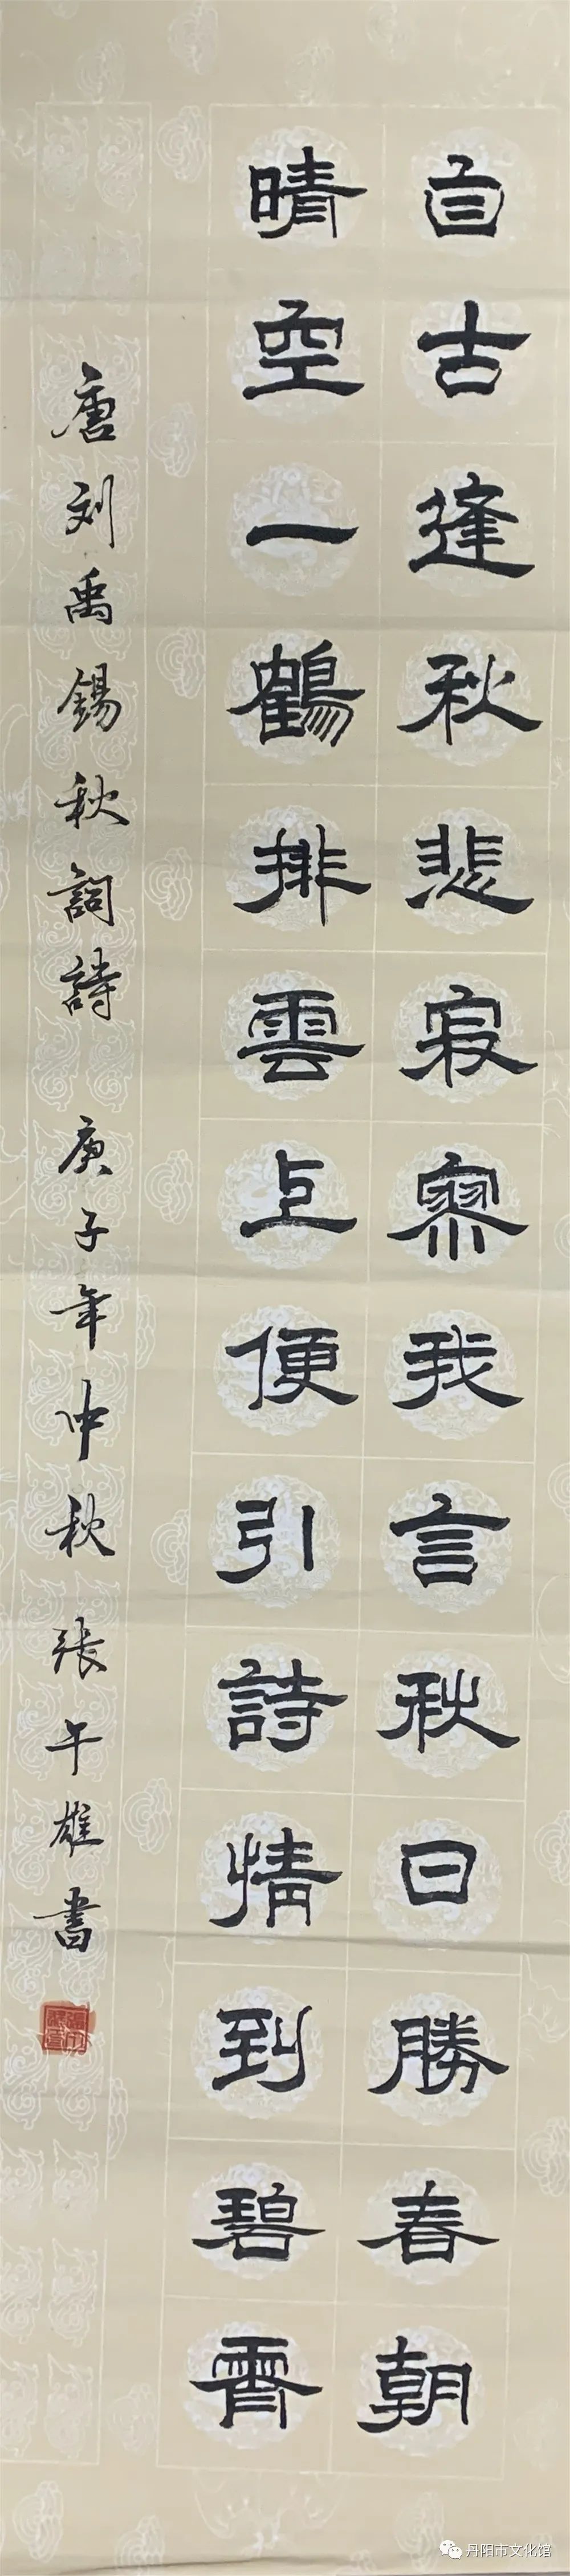 自古逢秋悲寂寥我言秋日勝春朝
晴空一鶴排雲上便引詩情到碧霄
唐刘禹錫秋詞詩 庚子年中秋 張午雄書
丹阳市文化馆